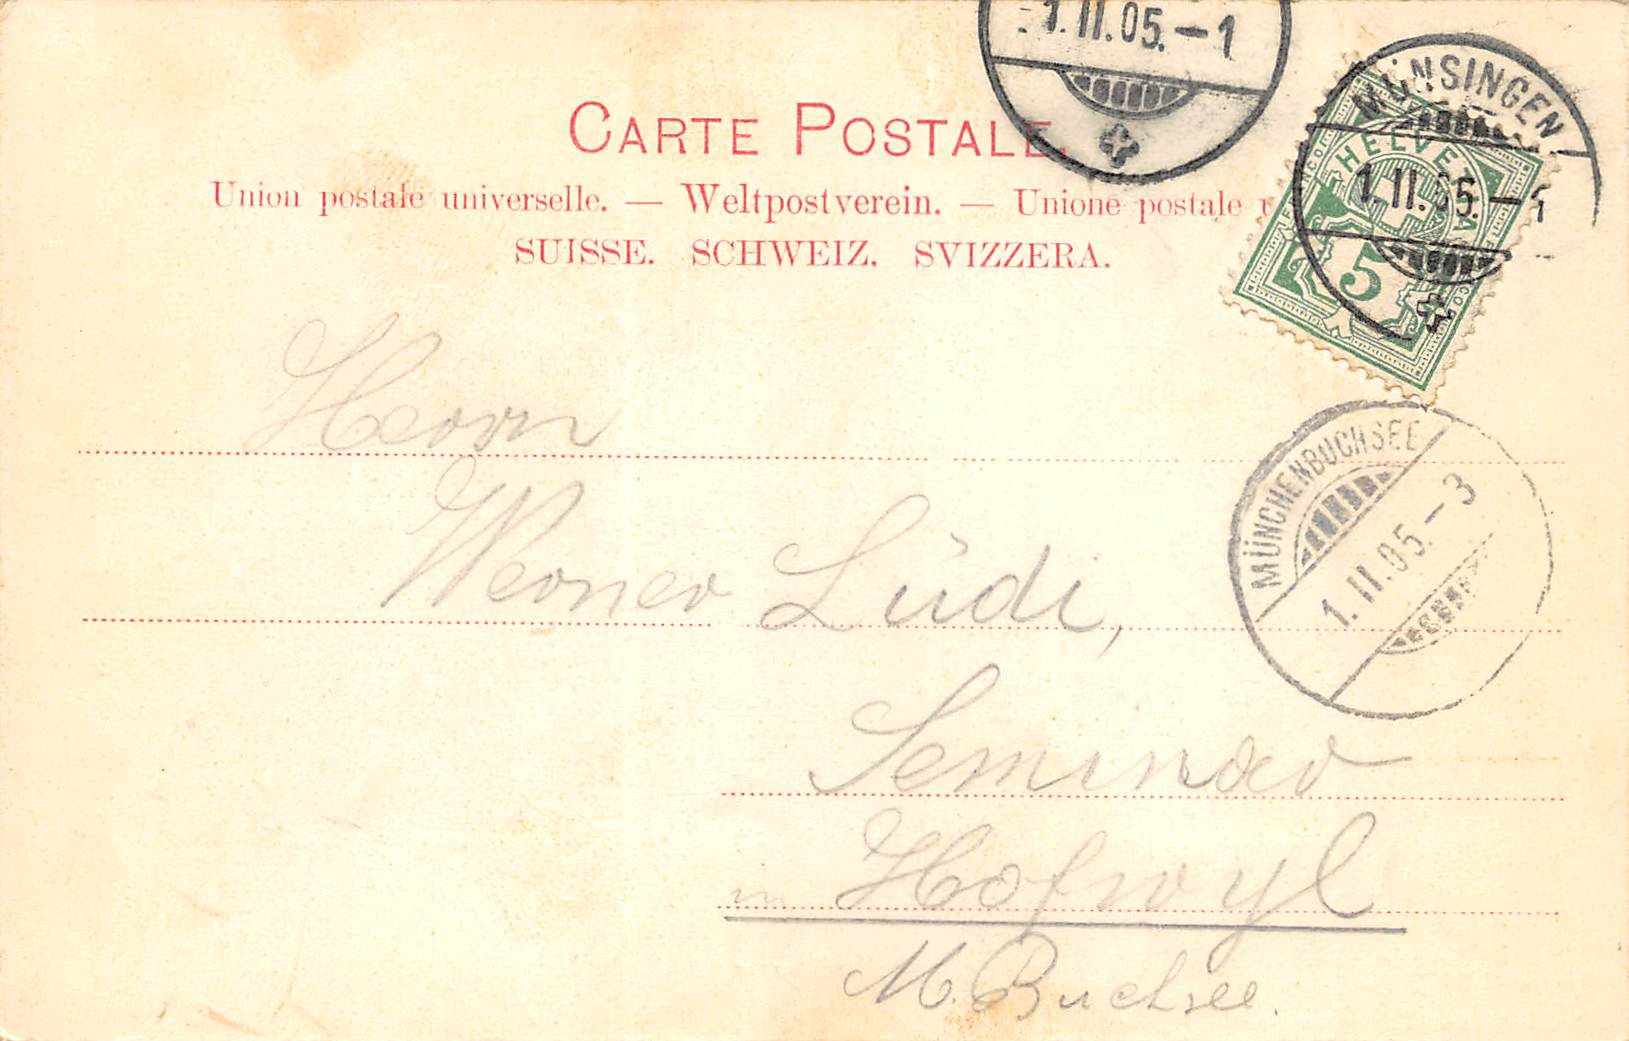 1.II.05.–1
MÜNSINGEN
1.II.05.–1
HELVETIA
5
CARTE POSTALE.
Union postale universelle. — Weltpostverein. — Unione postale
SUISSE. SCHWEIZ. SVIZZERA.
MÜNCHENBUCHSEE
1.II.05.–3
Herrn
Werner Lüdi,
Seminar
in Hofwyl
M. Buchsee.